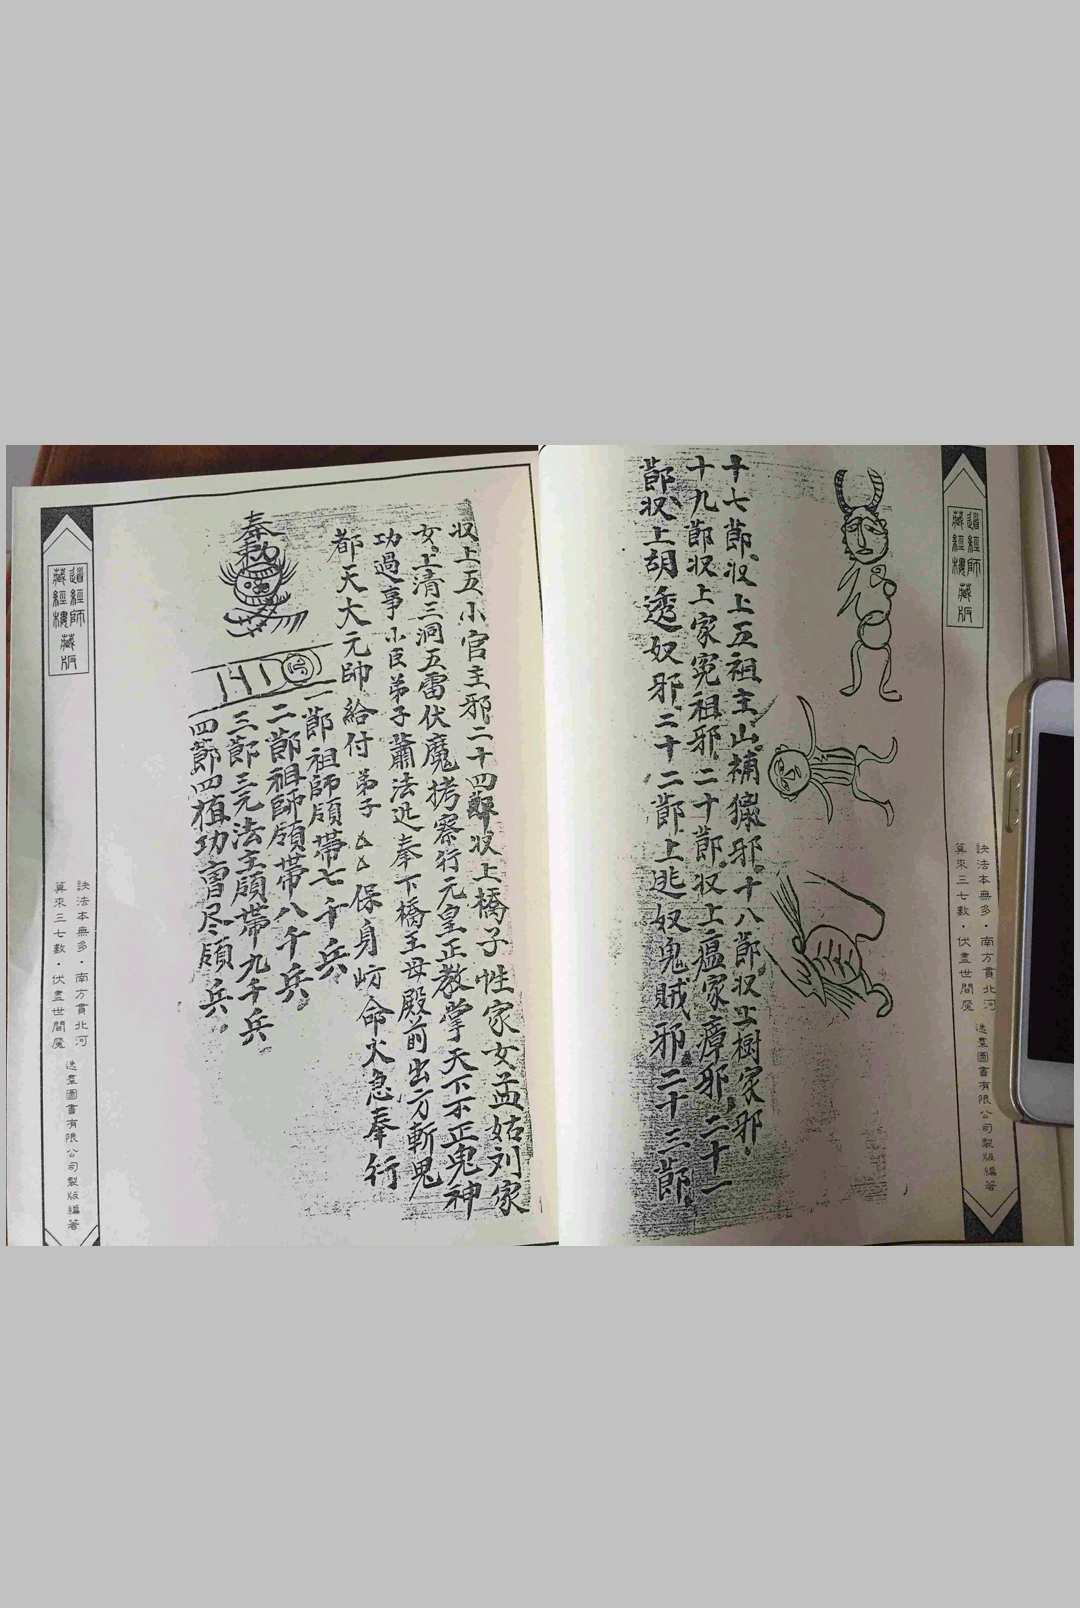 道經師藏版
藏經樓
訣法本無多・南方貫北河
算來三七數・伏盡世間魔
逸羣圖書有限公司製版編著
十七節収上五祖主山補獵邪十八節収上樹家邪
十九節収上家冤祖邪二十節収上瘟家瘴邪二十一
節収上胡透奴邪二十二節上逃奴鬼賊邪二十三節
収上五小官主邪二十四節収上橋子性家女孟姑刘家
女上清三洞五雷伏魔拷察行元皇正教掌天下不正鬼神
功過事小臣弟子蕭法迅奉下橋王母殿前出方斬鬼
都天大元帥給付弟子厶厶保身命火急奉行
奉勅
一節祖師領帶七千兵
二節祖師領帶八千兵
三節三元法主領帶九千兵
四節四植功曹尽領兵
道經師藏版
藏經樓
訣法本無多・南方貫北河
算來三七數・伏盡世間魔
逸羣圖書有限公司製版編著